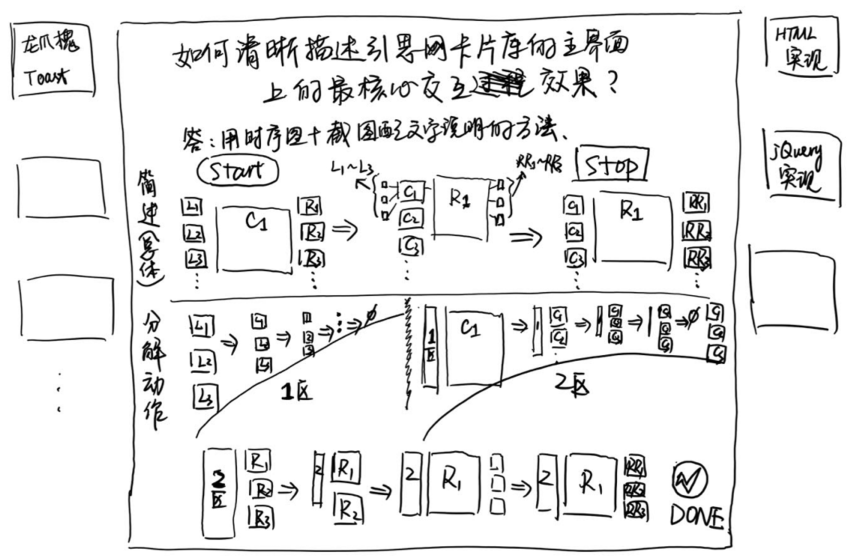 龙爪槐
Toast
如何清晰描述引思网卡片库的主界面
上的最核心交互效果?
答:用时序图+截图配文字说明的方法.
HTML
实现
jQuery
实现
简述(整体)
Start
L1~L3
RR1~RR3
Stop
L1
L2
L3
C1
R1
R2
R3
⇒
C1
C2
C3
R1
⇒
C1
C2
C3
R1
RR1
RR2
RR3
分解动作
L1
L2
L3
⇒
⇒
⇒
⇒
∅
1区
1区
C1
⇒
⇒
⇒
⇒
∅
2区
2区
R1
R2
R3
⇒
2
R1
R2
⇒
2
R1
⇒
2
R1
RR1
RR2
RR3
DONE